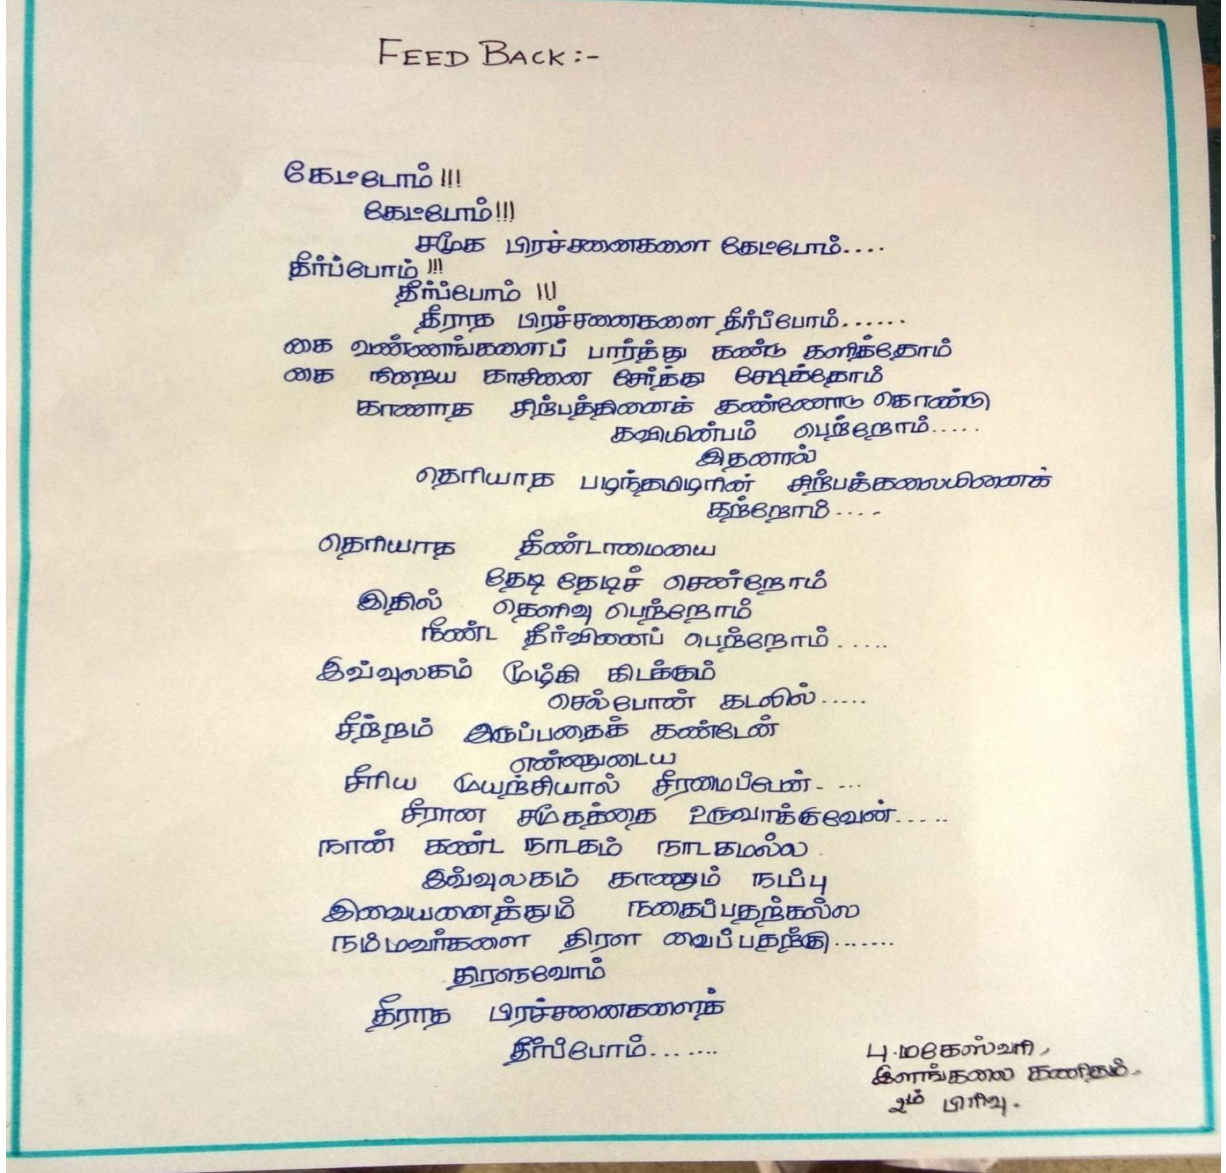 FEED BACK :-
கேட்போம் !!!
கேட்போம் !!!
சமூக பிரச்சனைகளை கேட்போம்....
தீர்ப்போம் !!!
தீர்ப்போம் !!!
தீராத பிரச்சனைகளை தீர்ப்போம்......
கை வண்ணங்களைப் பார்த்து கண்டு களித்தோம்
கை நிறைய காசினை சேர்த்து சேமித்தோம்
காணாத சிற்பத்தினைக் கண்ணோடு கொண்டு
கவியின்பம் பெற்றோம்.....
இதனால்
தெரியாத பழந்தமிழரின் சிற்பக்கலையினைக்
கற்றோம்....
தெரியாத தீண்டாமையை
தேடி தேடிச் சென்றோம்
இதில் தெளிவு பெற்றோம்
நீண்ட தீர்வினைப் பெற்றோம்.....
இவ்வுலகம் மூழ்கி கிடக்கும்
செல்போன் கடலில்.....
சீற்றம் இருப்பதைக் கண்டேன்
என்னுடைய
சீரிய முயற்சியால் சீரமைப்பேன்....
சீரான சமூகத்தை உருவாக்குவேன்.....
நான் கண்ட நாடகம் நாடகமல்ல
இவ்வுலகம் காணும் நடிப்பு
இவையனைத்தும் நகைப்பதற்கல்ல
நம்மவர்களை திரள வைப்பதற்கு.......
திரளுவோம்
தீராத பிரச்சனைகளைத்
தீர்ப்போம்.......
பு.மகேஸ்வரி,
இளங்கலை கணிதம்,
2ம் பிரிவு.